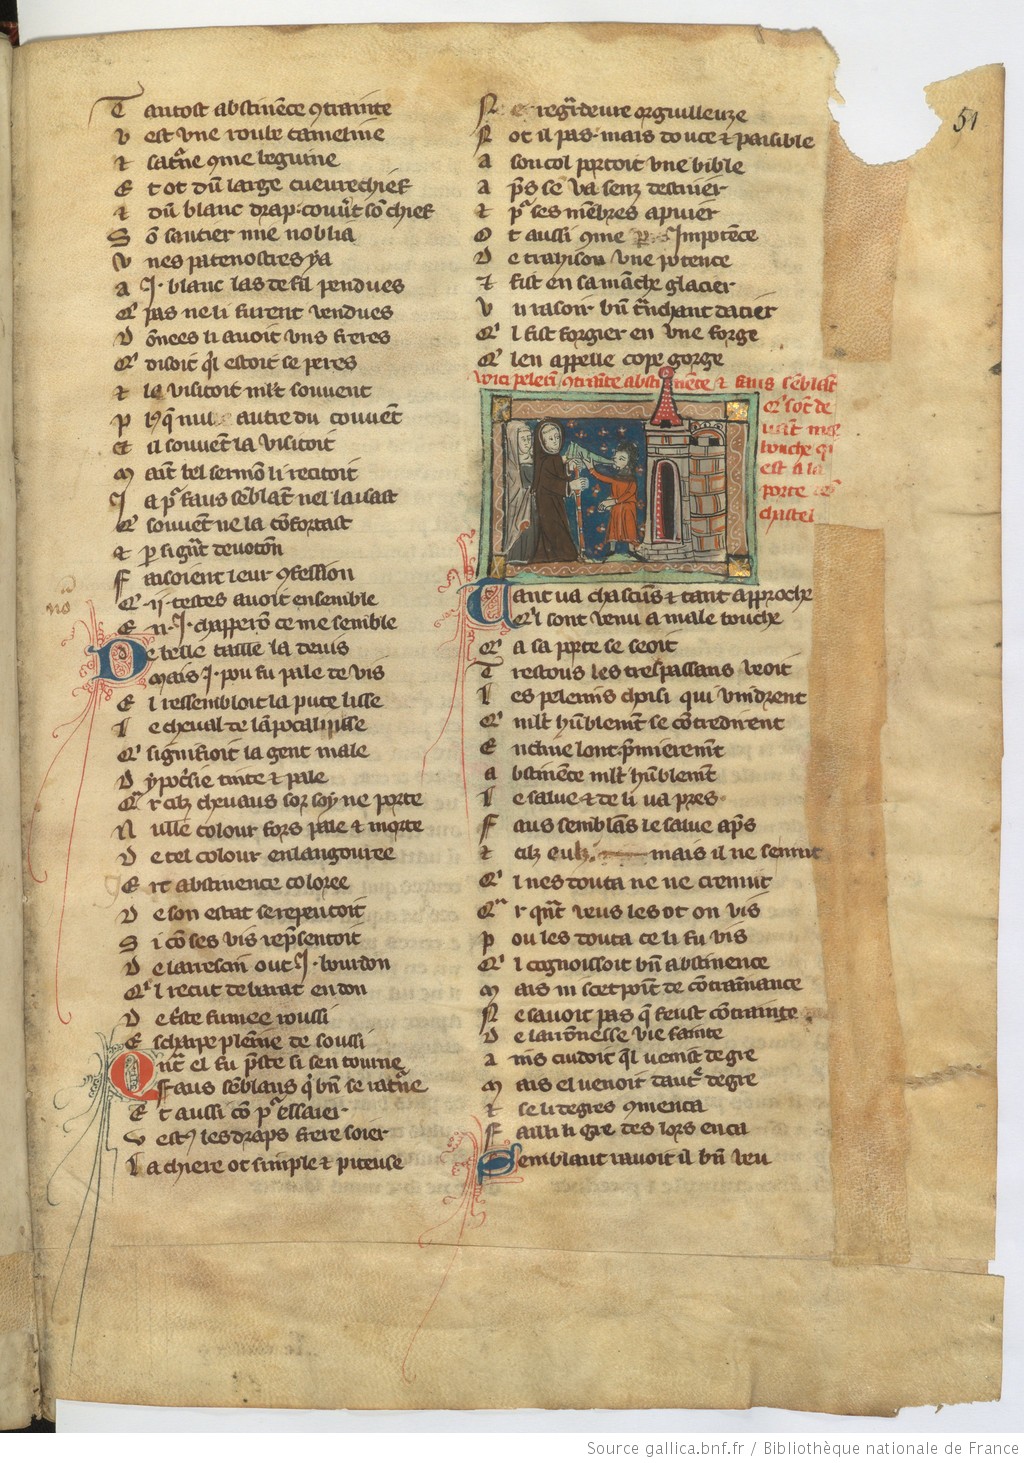 51
Tantost abstinēce 9trainte
Vest vne roube cameline
⁊ satñe 9me beguine
Et ot dū large cueurechief
⁊ dū blanc drap couūt sō chief
Sō sautier mie noblia
Vnes patenostres ya
A .j. blanc las de fil pendues
Q' pas ne li furent vendues
Dōnees li auoit vns freres
Q' disoit q̄l estoit se peres
⁊ le visitoit ml't souuent
P l' q̄ nul autre du couuēt
Et il souuēt la visitoit
Maīt bel sermō li recitoit
Ja pʳ faus sēblāt nel laisast
Q' souuēt ne la cōfortast
⁊ p̄ sigñt deuotōn
Faisoient leur 9fession
Q' .ij. testes auoit ensemble
En .j. chapperō ce me semble
De belle taille la deuis
Mais .j. pou fu pale de vis
El ressembloit la pute lisse
Le cheual de lāpocalipsse
Q' signifioit la gent male
Dypocͥsie tainte ⁊ pale
Qʳ cilz cheuaus sor soy ne porte
Nulle colour fors pale ⁊ morte
De tel colour enlangouree
Ert abstinence coloree
De son estat se repentoit
Si cō ses vis rep̄sentoit
De larrescin out .j. bourdon
Q'l recut de barat en don
De t̄ste fumee roussi
Escharpe pleīne de soussi
Qn̄t el fu p̄ste si sen tourne
Faus sēblans q̄ bn̄ se ratñe
Et aussi cō pʳ essaier
Vest9 les draps frere soier
La chiere ot simple ⁊ piteuse
Ne regʳdeure orguilleuze
Not il pas mais douce ⁊ paisible
A son col portoit vne bible
Ap̄s se va senz destriier
⁊ pʳ ses mēbres apuier
Ot aussi 9me p̄ Jmpotēce
De trahison vne potence
⁊ fist en sa māche glacier
Vn rasoir bn̄ t̄nchant dacier
Q'l fist forgier en vne forge
Q' len appelle cope gorge
Vici pelerī 9trainte abstinēce ⁊ faus sēblāt
q' sōt de
uāt male
bouche qi
est a la
porte de
chastel
Tant va chascūs ⁊ tant approche
Q'l sont venu a male bouche
Q' a sa porte se seoit
Trestous les trespassans veoit
Les pelerins choisi qui vindrent
Q' ml't hūblemēt se cōtredirent
Encline lont p̄mieremēt
Abstinēce ml't hūblemēt
Le salue ⁊ de li va pres
Faus semblās le salue ap̄s
⁊ cilz eulz mais il ne sermut
Q'l nes douta ne ne cremut
Qʳ qn̄t veus les ot on vis
Pou les douta ce li fu vis
Q'l cognoissoit bn̄ abstinence
Mais ni scet poīt de cōtraīnance
Ne sauoit pas q̄ feust cōtrainge
De larōnesse vie fainte
Ains cuidoit q̄l venist de gre
Mais el venoit daut' degre
⁊ se li degres 9menca
Failli li gre des lors enca
Semblant rauoit il bn̄ veu
Source gallica.bnf.fr / Bibliothèque nationale de France